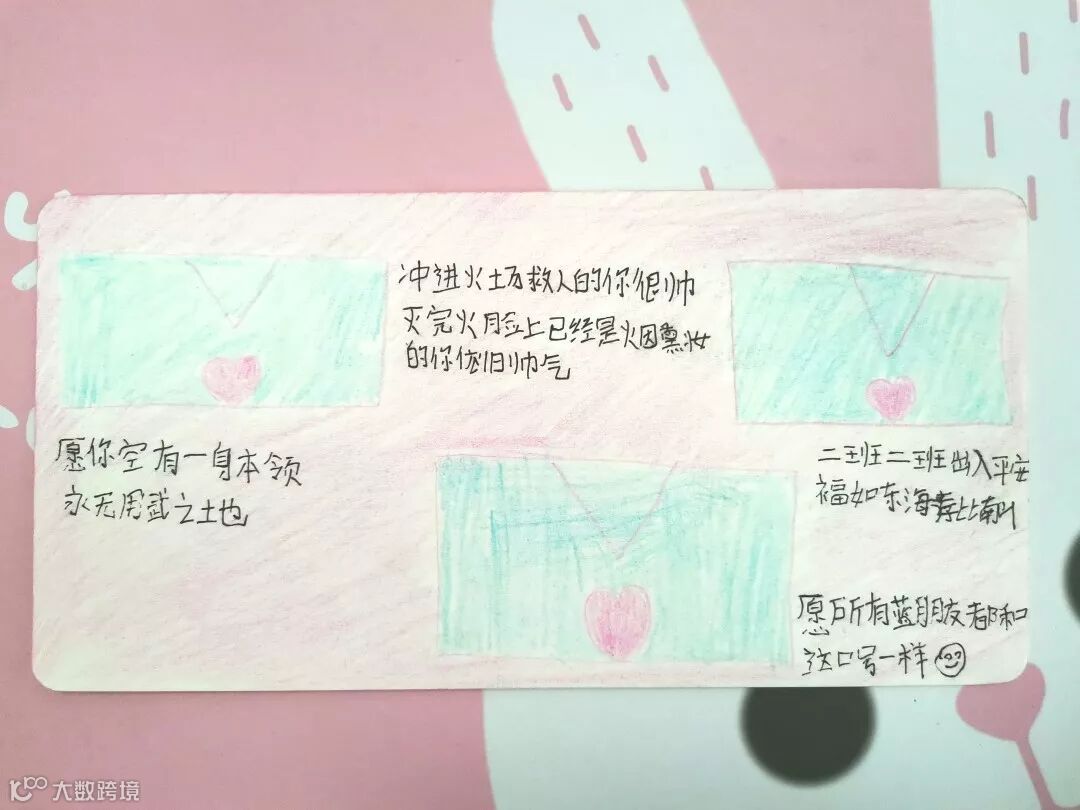 冲进火场救人的你很帅
灭完火脸上已经是烟熏妆
的你依旧帅气
愿你空有一身本领
永无用武之地
二班二班出入平安
福如东海寿比南山
愿所有蓝朋友都和
这口号一样
大数跨境